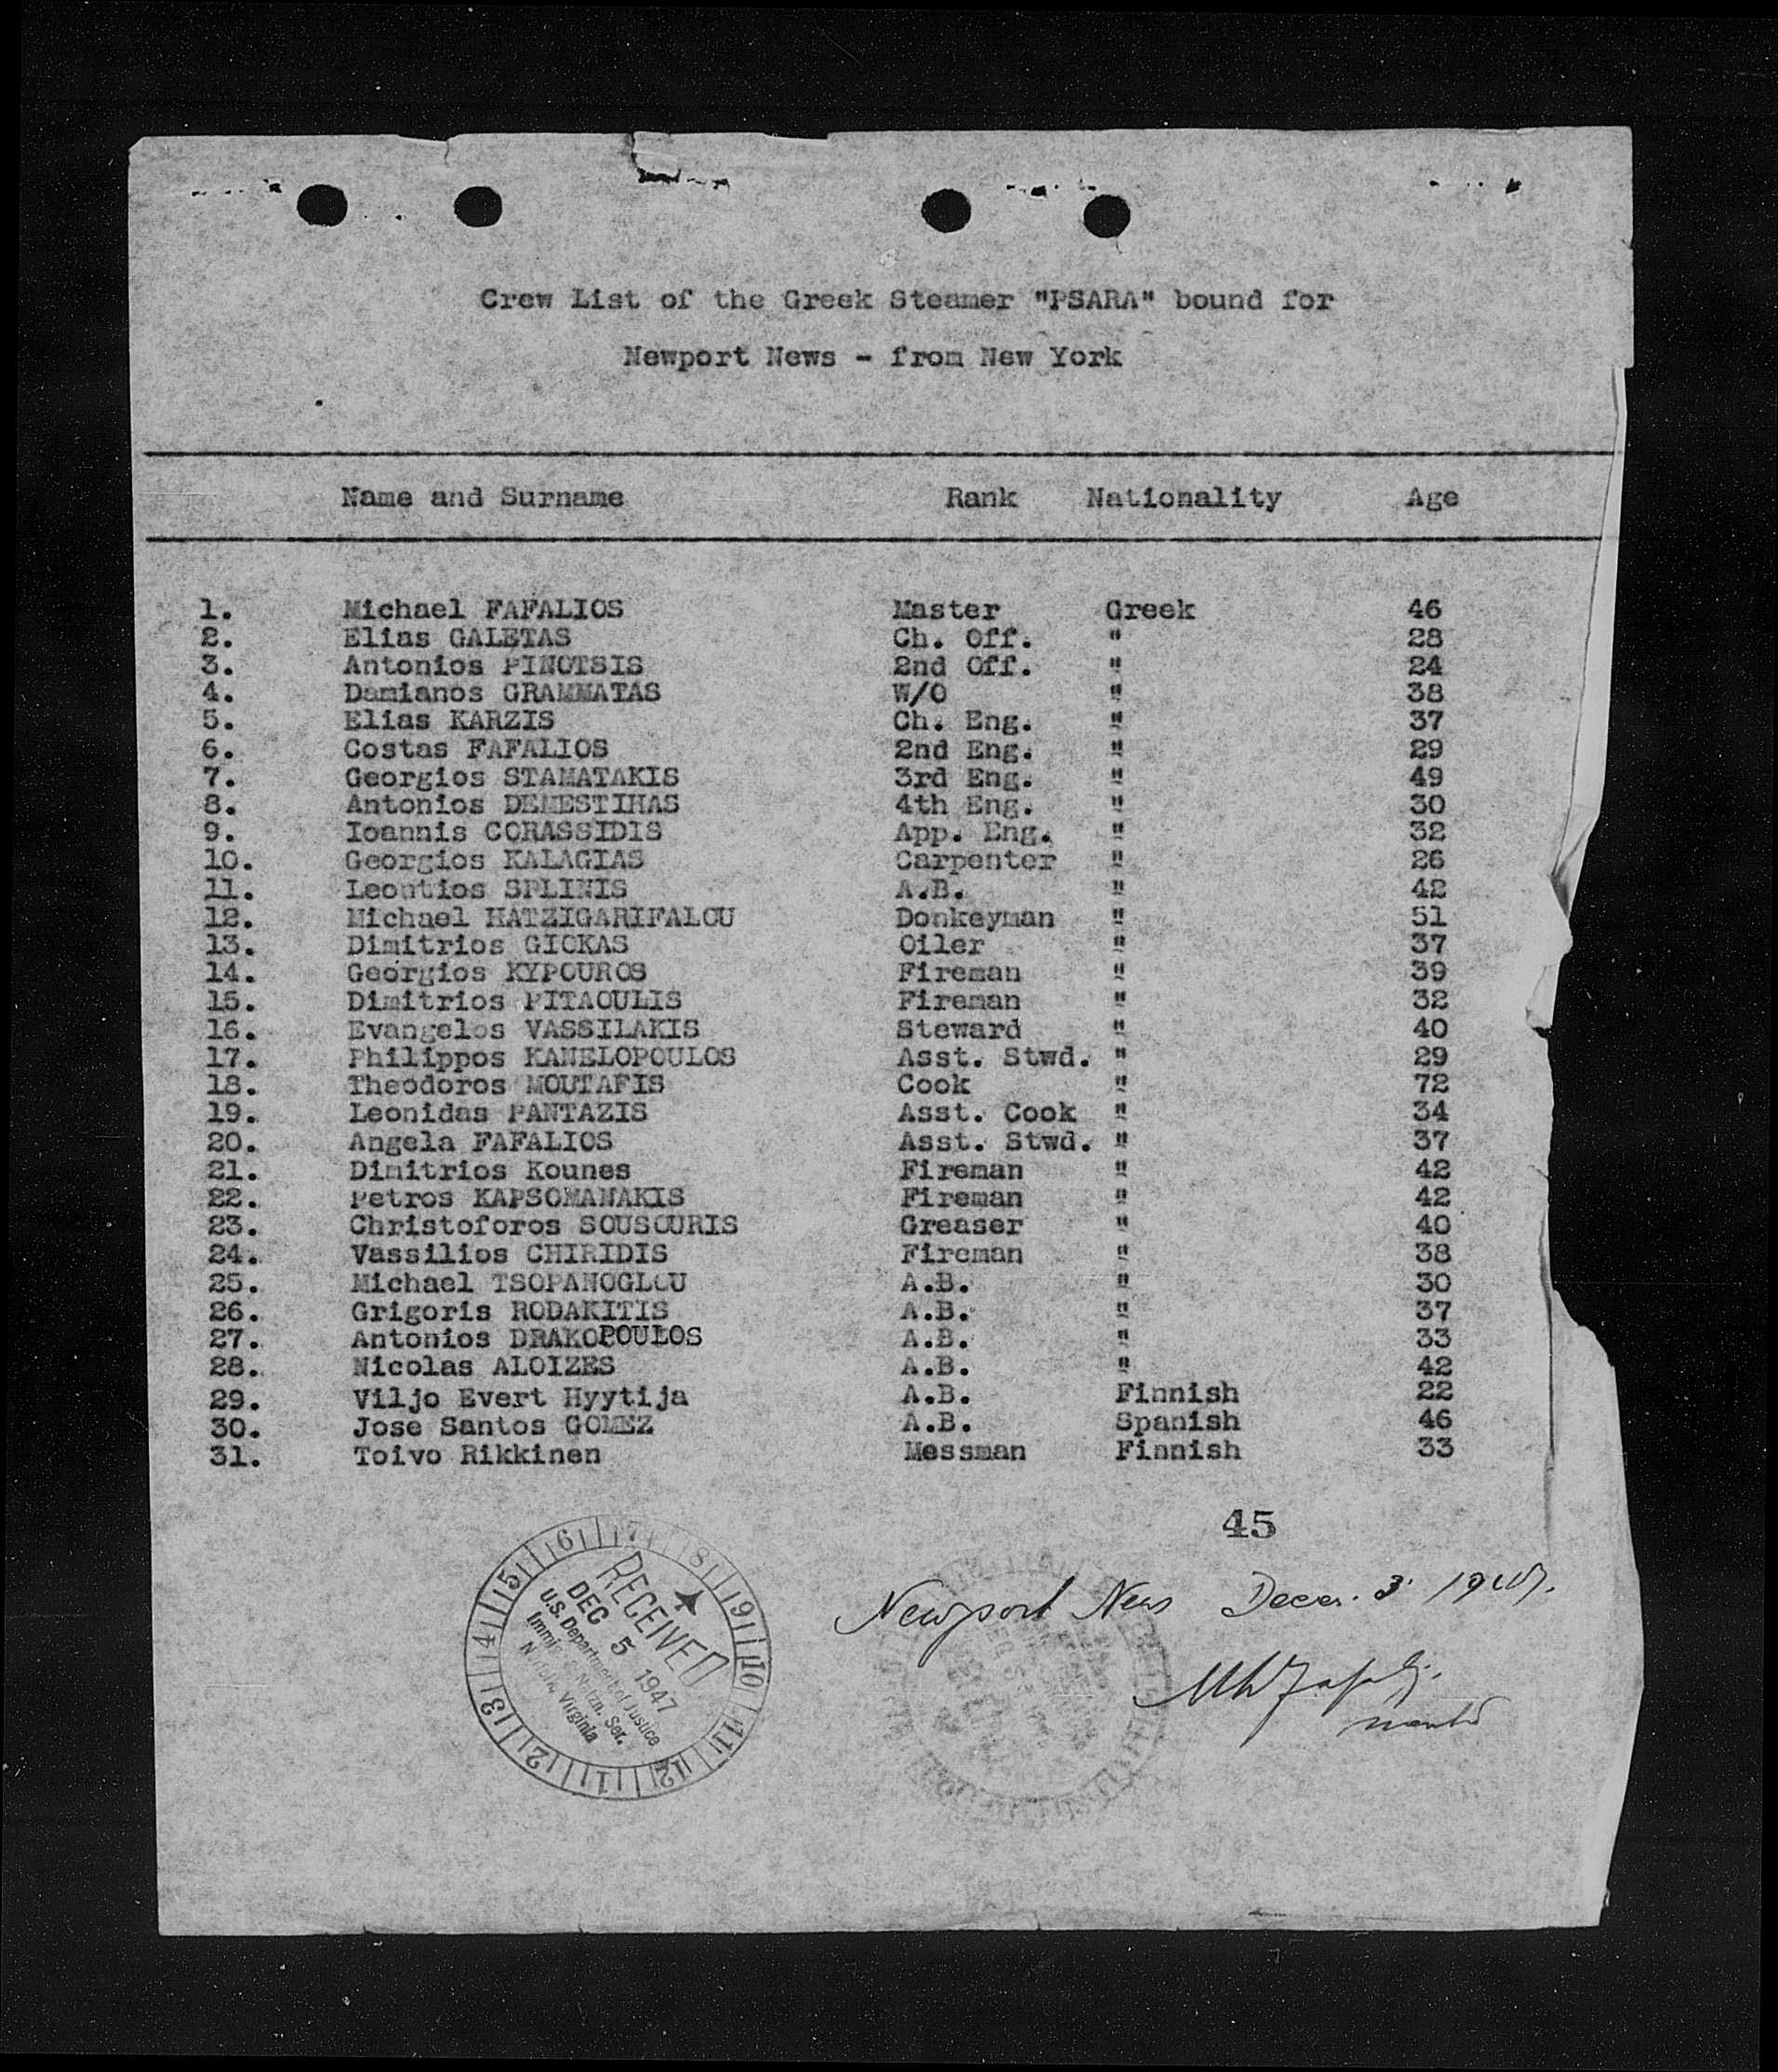 Crew List of the Greek Steamer "PSARA" bound for
Newport News - from New York
Name and Surname Rank Nationality Age
1. Michael FAFALIOS Master Greek 46
2. Elias GALETAS Ch. Off. " 28
3. Antonios PINOTSIS 2nd Off. " 24
4. Damianos GRAMMATAS W/O " 38
5. Elias KARZIS Ch. Eng. " 37
6. Costas FAFALIOS 2nd Eng. " 29
7. Georgios STAMATAKIS 3rd Eng. " 49
8. Antonios DEMESTIHAS 4th Eng. " 30
9. Ioannis CORASSIDIS App. Eng. " 32
10. Georgios KALAGIAS Carpenter " 26
11. Leontios SPLINIS A.B. " 42
12. Michael HATZIGARIFALOU Donkeyman " 51
13. Dimitrios GIOKAS Oiler " 37
14. Georgios KYPOUROS Fireman " 39
15. Dimitrios PITAOULIS Fireman " 32
16. Evangelos VASSILAKIS Steward " 40
17. Philippos KANELOPOULOS Asst. Stwd. " 29
18. Theodoros MOUTAFIS Cook " 72
19. Leonidas PANTAZIS Asst. Cook " 34
20. Angela FAFALIOS Asst. Stwd. " 37
21. Dimitrios Kounes Fireman " 42
22. Petros KAPSOMANAKIS Fireman " 42
23. Christoforos SOUSOURIS Greaser " 40
24. Vassilios CHIRIDIS Fireman " 38
25. Michael TSOPANOGLOU A.B. " 30
26. Grigoris RODAKITIS A.B. " 37
27. Antonios DRAKOPOULOS A.B. " 33
28. Nicolas ALOIZES A.B. " 42
29. Viljo Evert Hyytija A.B. Finnish 22
30. Jose Santos GOMEZ A.B. Spanish 46
31. Toivo Rikkinen Messman Finnish 33
45
Newport News Decem. 3 1947.
6 7 8 9 10 11 12 1 2 3 4 5
RECEIVED
DEC 5 1947
U.S. Department of Justice
Immig. & Natzn. Ser.
Norfolk, Virginia